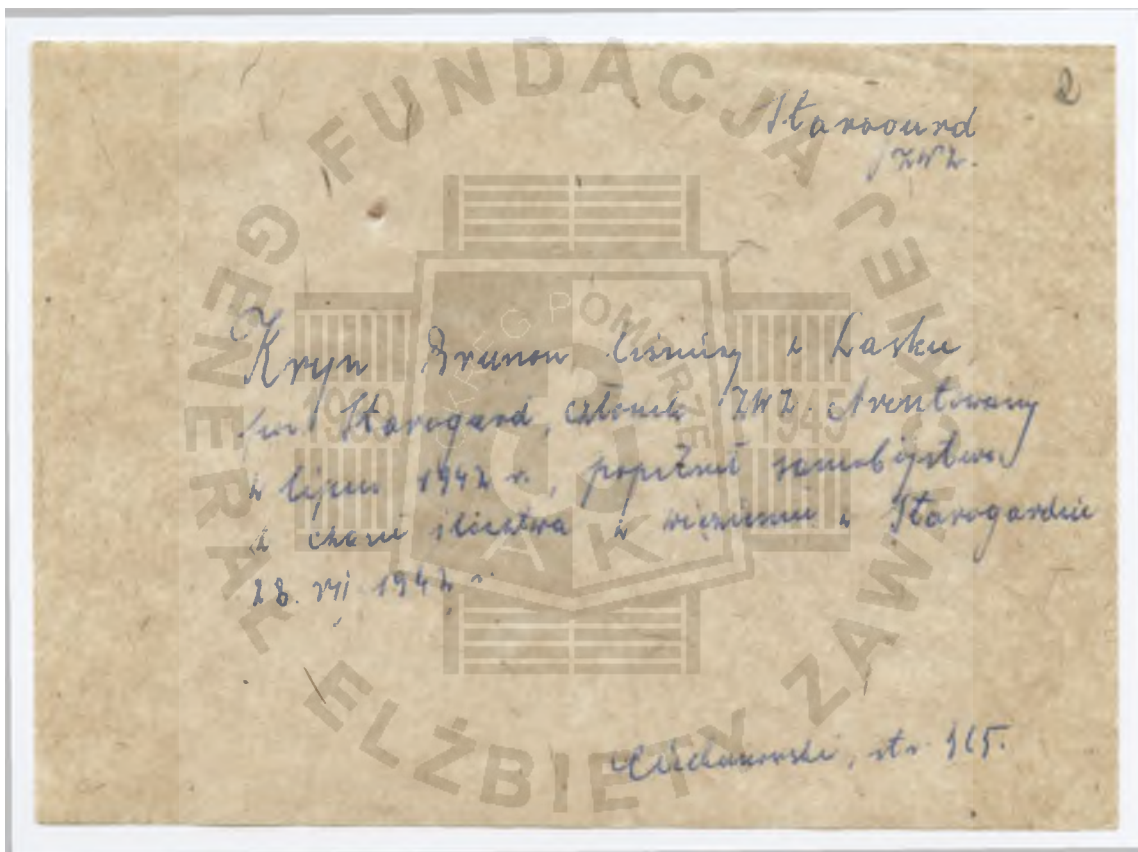 2
Starogard
ZWZ.
Kryn Brunon leśniczy z Lasku
pow. Starogard, członek ZWZ. Aresztowany
w lipcu 1942 r., popełnił samobójstwo
w czasie śledztwa w więzieniu w Starogardzie
28. VII 1942 r.
Ciechanowski, str. 365.
FUNDACJA
GENERAŁ ELŻBIETY ZAWACKIEJ
POMORZE
1939 1945
AK